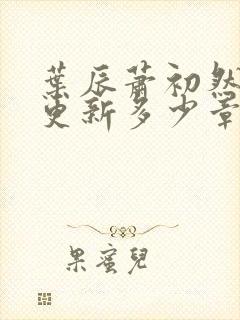 葉辰蕭初然
更新多少章
果蜜兒